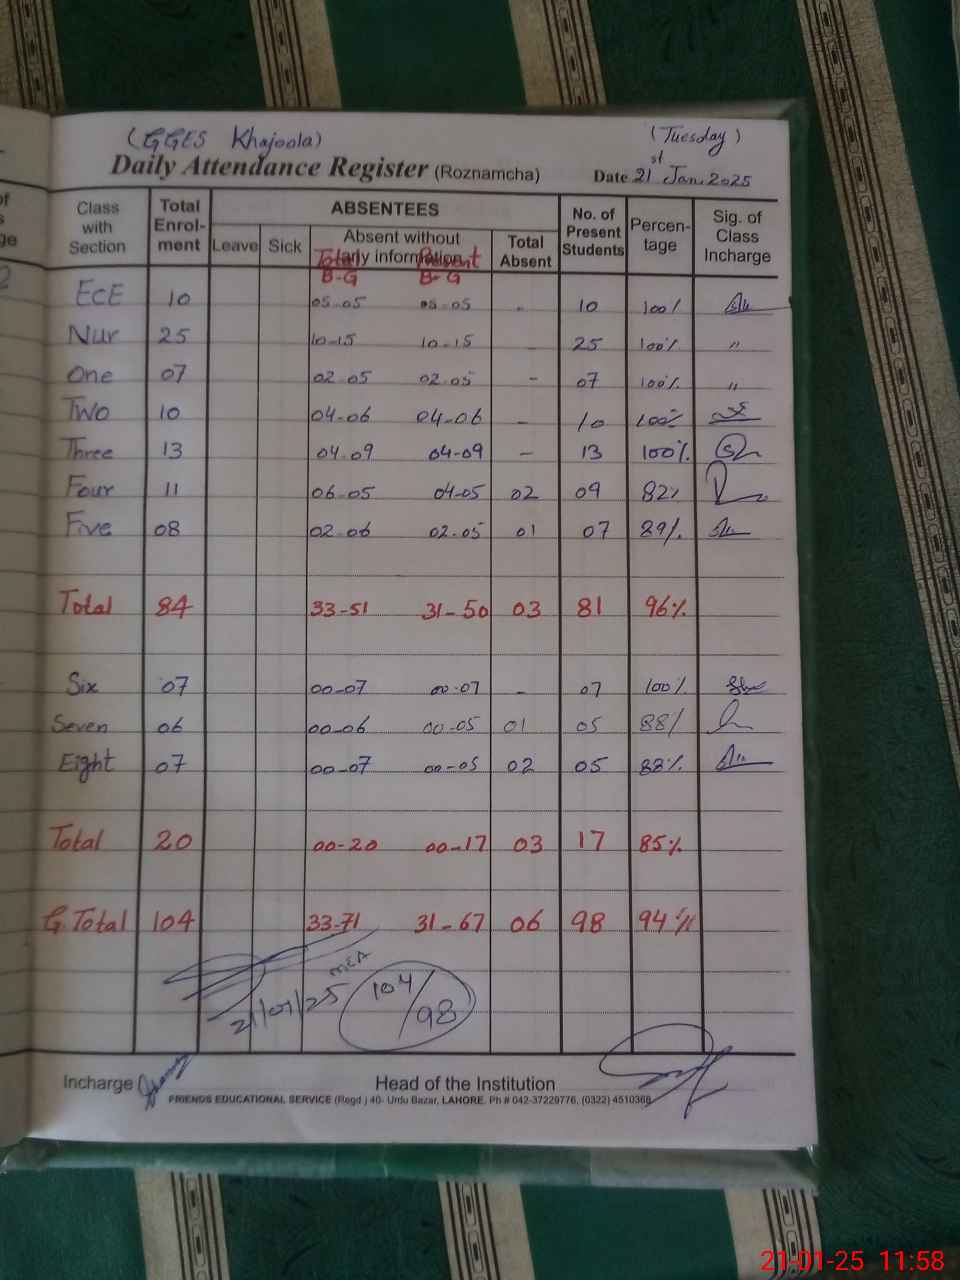 (GGES Khajoola) (Tuesday)
Daily Attendance Register (Roznamcha) Date 21st Jan. 2025
Class with Section Total Enrol-ment ABSENTEES No. of Present Students Percen-tage Sig. of Class Incharge
Leave Sick Absent without any information Total Absent
Total Present
B-G B-G
ECE 10 05-05 05-05 - 10 100%
Nur 25 10-15 10-15 - 25 100% "
One 07 02-05 02-05 - 07 100% "
Two 10 04-06 04-06 - 10 100%
Three 13 04-09 04-09 - 13 100%
Four 11 06-05 04-05 02 09 82%
Five 08 02-06 02-05 01 07 89%
Total 84 33-51 31-50 03 81 96%
Six 07 00-07 00-07 - 07 100%
Seven 06 00-06 00-05 01 05 88%
Eight 07 00-07 00-05 02 05 88%
Total 20 00-20 00-17 03 17 85%
G.Total 104 33-71 31-67 06 98 94%
MEA
21/01/25 104/98
Incharge Head of the Institution
FRIENDS EDUCATIONAL SERVICE (Regd.) 40- Urdu Bazar, LAHORE. Ph # 042-37229776, (0322) 4510368
21-01-25 11:58